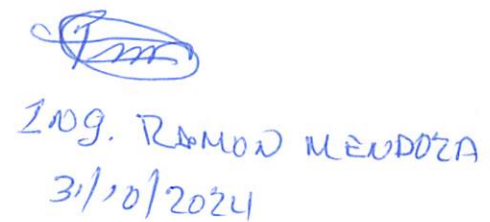 Ing. RAMON MENDOZA
31/10/2024